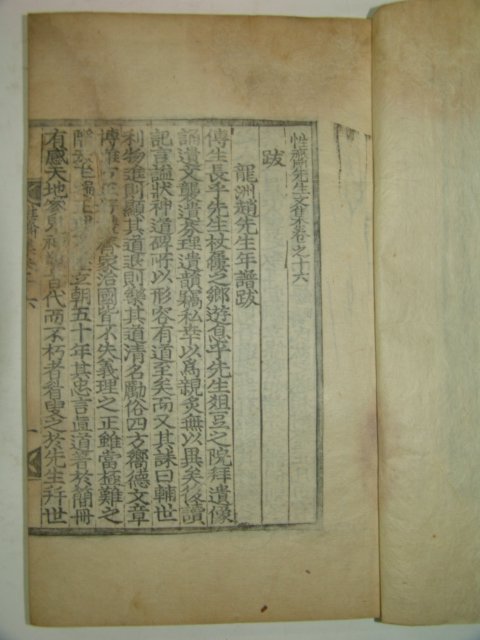 性齋先生文集卷之十六
跋
龍洲趙先生年譜跋
傳生長乎先生杖屨之鄉遊息乎先生俎豆之院拜遺像
誦遺文襲遺芬理遺韻竊私幸以爲親炙無以異矣後讀
記言謚狀神道碑所以形容有道至矣而又其誄曰輔世
利物進則顯其道退則鞏其道清名勵俗四方嚮德文章
博雅 家治國皆不失義理之正雖當極難之
之朝五十年其忠言直道著於簡冊
有感天地 百代而不朽者眷眷之於先生幷世